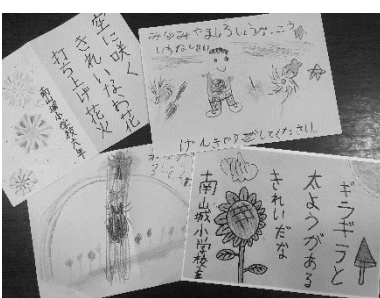 空に咲く
きれいなわ花
打ち上げ花火
南山城小学校六年
みなみやましろしょうがっこう
いちねんせい
げんきですごしてください
ギラギラと
太ようがある
きれいだな
南山城小学校